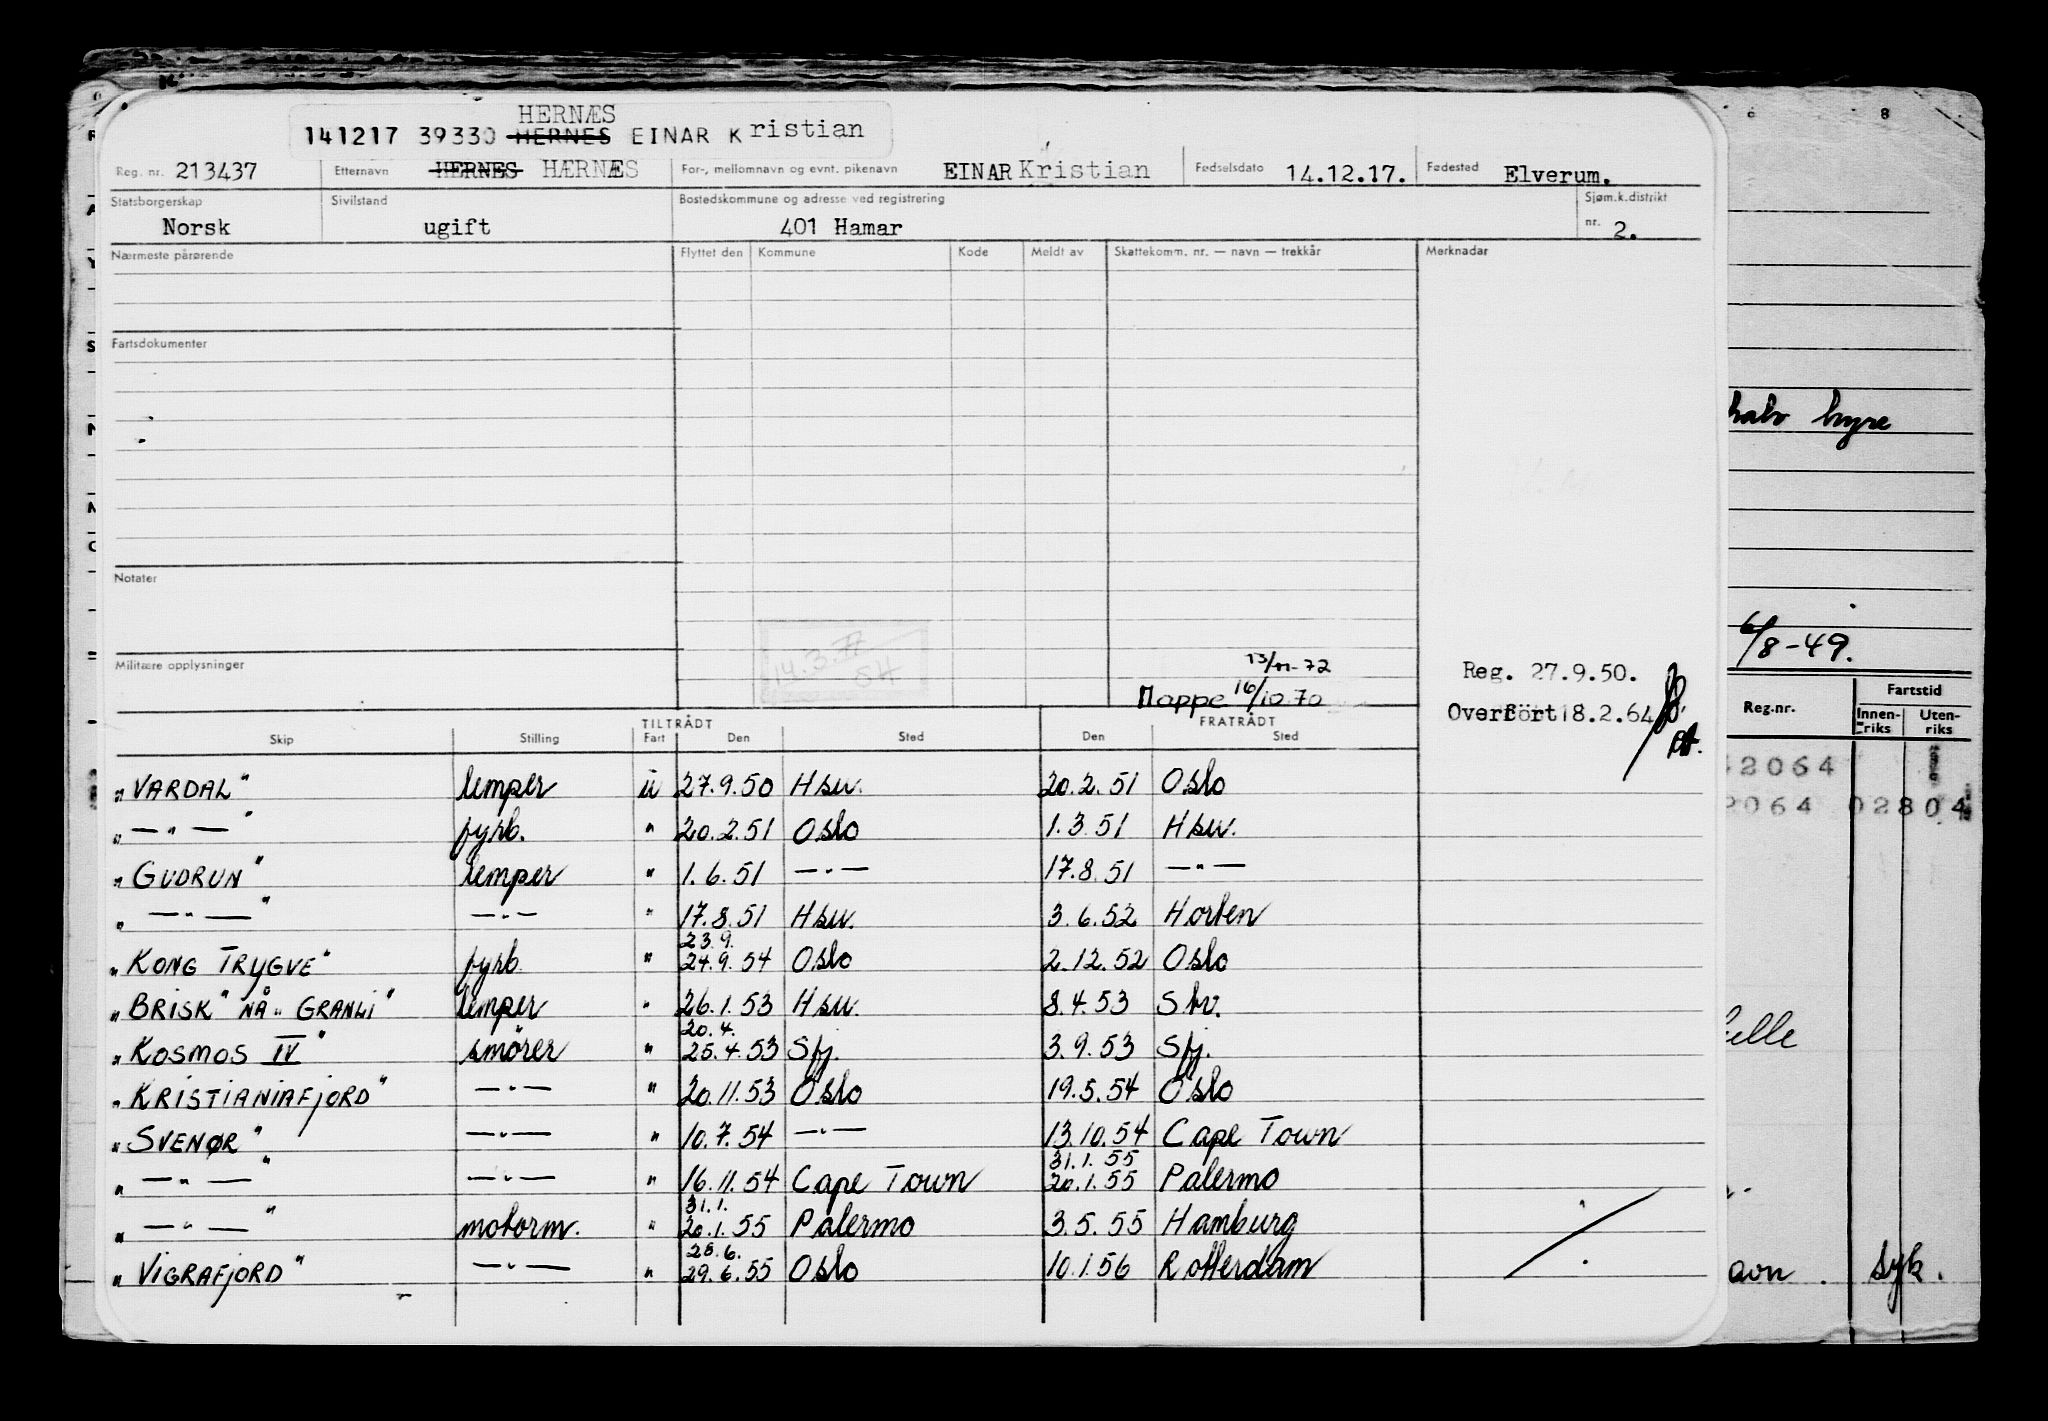 HERNÆS
141217 39330 HERNES EINAR Kristian
Reg. nr. 213437 Etternavn HERNES HÆRNÆS For-, mellomnavn og evnt. pikenavn EINAR Kristian Fødselsdato 14.12.17. Fødested Elverum.
Statsborgerskap Sivilstand Bostedskommune og adresse ved registrering Sjøm.k.distrikt
Norsk ugift 401 Hamar nr. 2.
Nærmeste pårørende Flyttet den Kommune Kode Meldt av Skattekomm. nr. — navn — trekkår Merknader
Fartsdokumenter
halv hyre
Notater
6/8-49.
14.3.77
SH
Militære opplysninger 13/11-72 Reg. 27.9.50.
Mappe 16/10.70 Overført 18.2.64
Reg.nr. Fartstid
Innen-riks Uten-riks
TILTRÅDT FRATRÅDT
Skip Stilling Fart Den Sted Den Sted
"VARDAL" lemper u 27.9.50 Hsu. 20.2.51 Oslo
2064
" — " — " fyrb. " 20.2.51 Oslo 1.3.51 Hsu.
2064 02804
"GUDRUN" lemper " 1.6.51 — " — 17.8.51 — " —
" — " — " — " — " 17.8.51 Hsu. 3.6.52 Horten
23.9.
"KONG TRYGVE" fyrb. " 24.9.54 Oslo 2.12.52 Oslo
"BRISK" NÅ "GRANLI" lemper " 26.1.53 Hsu. 8.4.53 Sbv.
20.4.
"KOSMOS IV" smører " 25.4.53 Sfj. 3.9.53 Sfj.
"KRISTIANIAFJORD" — " — " 20.11.53 Oslo 19.5.54 Oslo
"SVENØR" — " — " 10.7.54 — " — 13.10.54 Cape Town
31.1.55
" — " — " — " — " 16.11.54 Cape Town 20.1.55 Palermo
31.1.
" — " — " motorm. " 20.1.55 Palermo 3.5.55 Hamburg
28.6.
"VIGRAFJORD" — " — " 29.6.55 Oslo 10.1.56 Rotterdam
avn. syk.